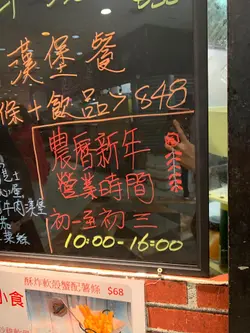 漢堡餐
條+飲品>$48
農曆新年
營業時間
初一至初三
10:00-16:00
芝士
牛肉漢堡
加
酥炸軟殼蟹配薯條 $68
小食